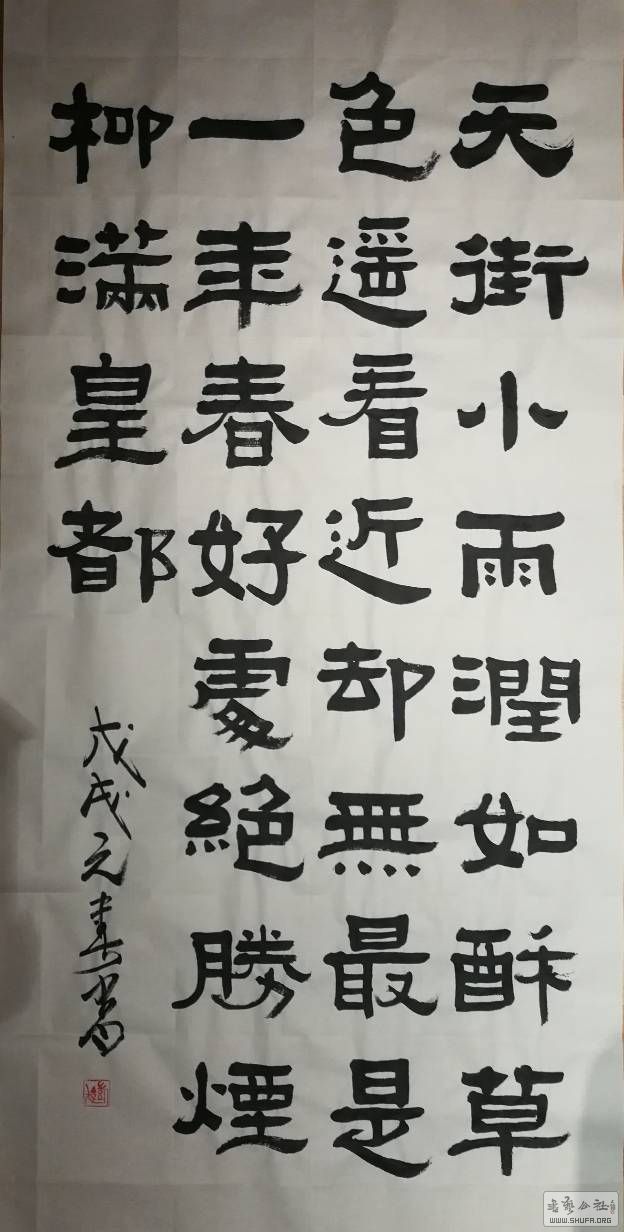 天街小雨潤如酥草
色遥看近却無最是
一年春好處絕勝煙
柳滿皇都
戊戌元春
WWW.SHUFA.ORG